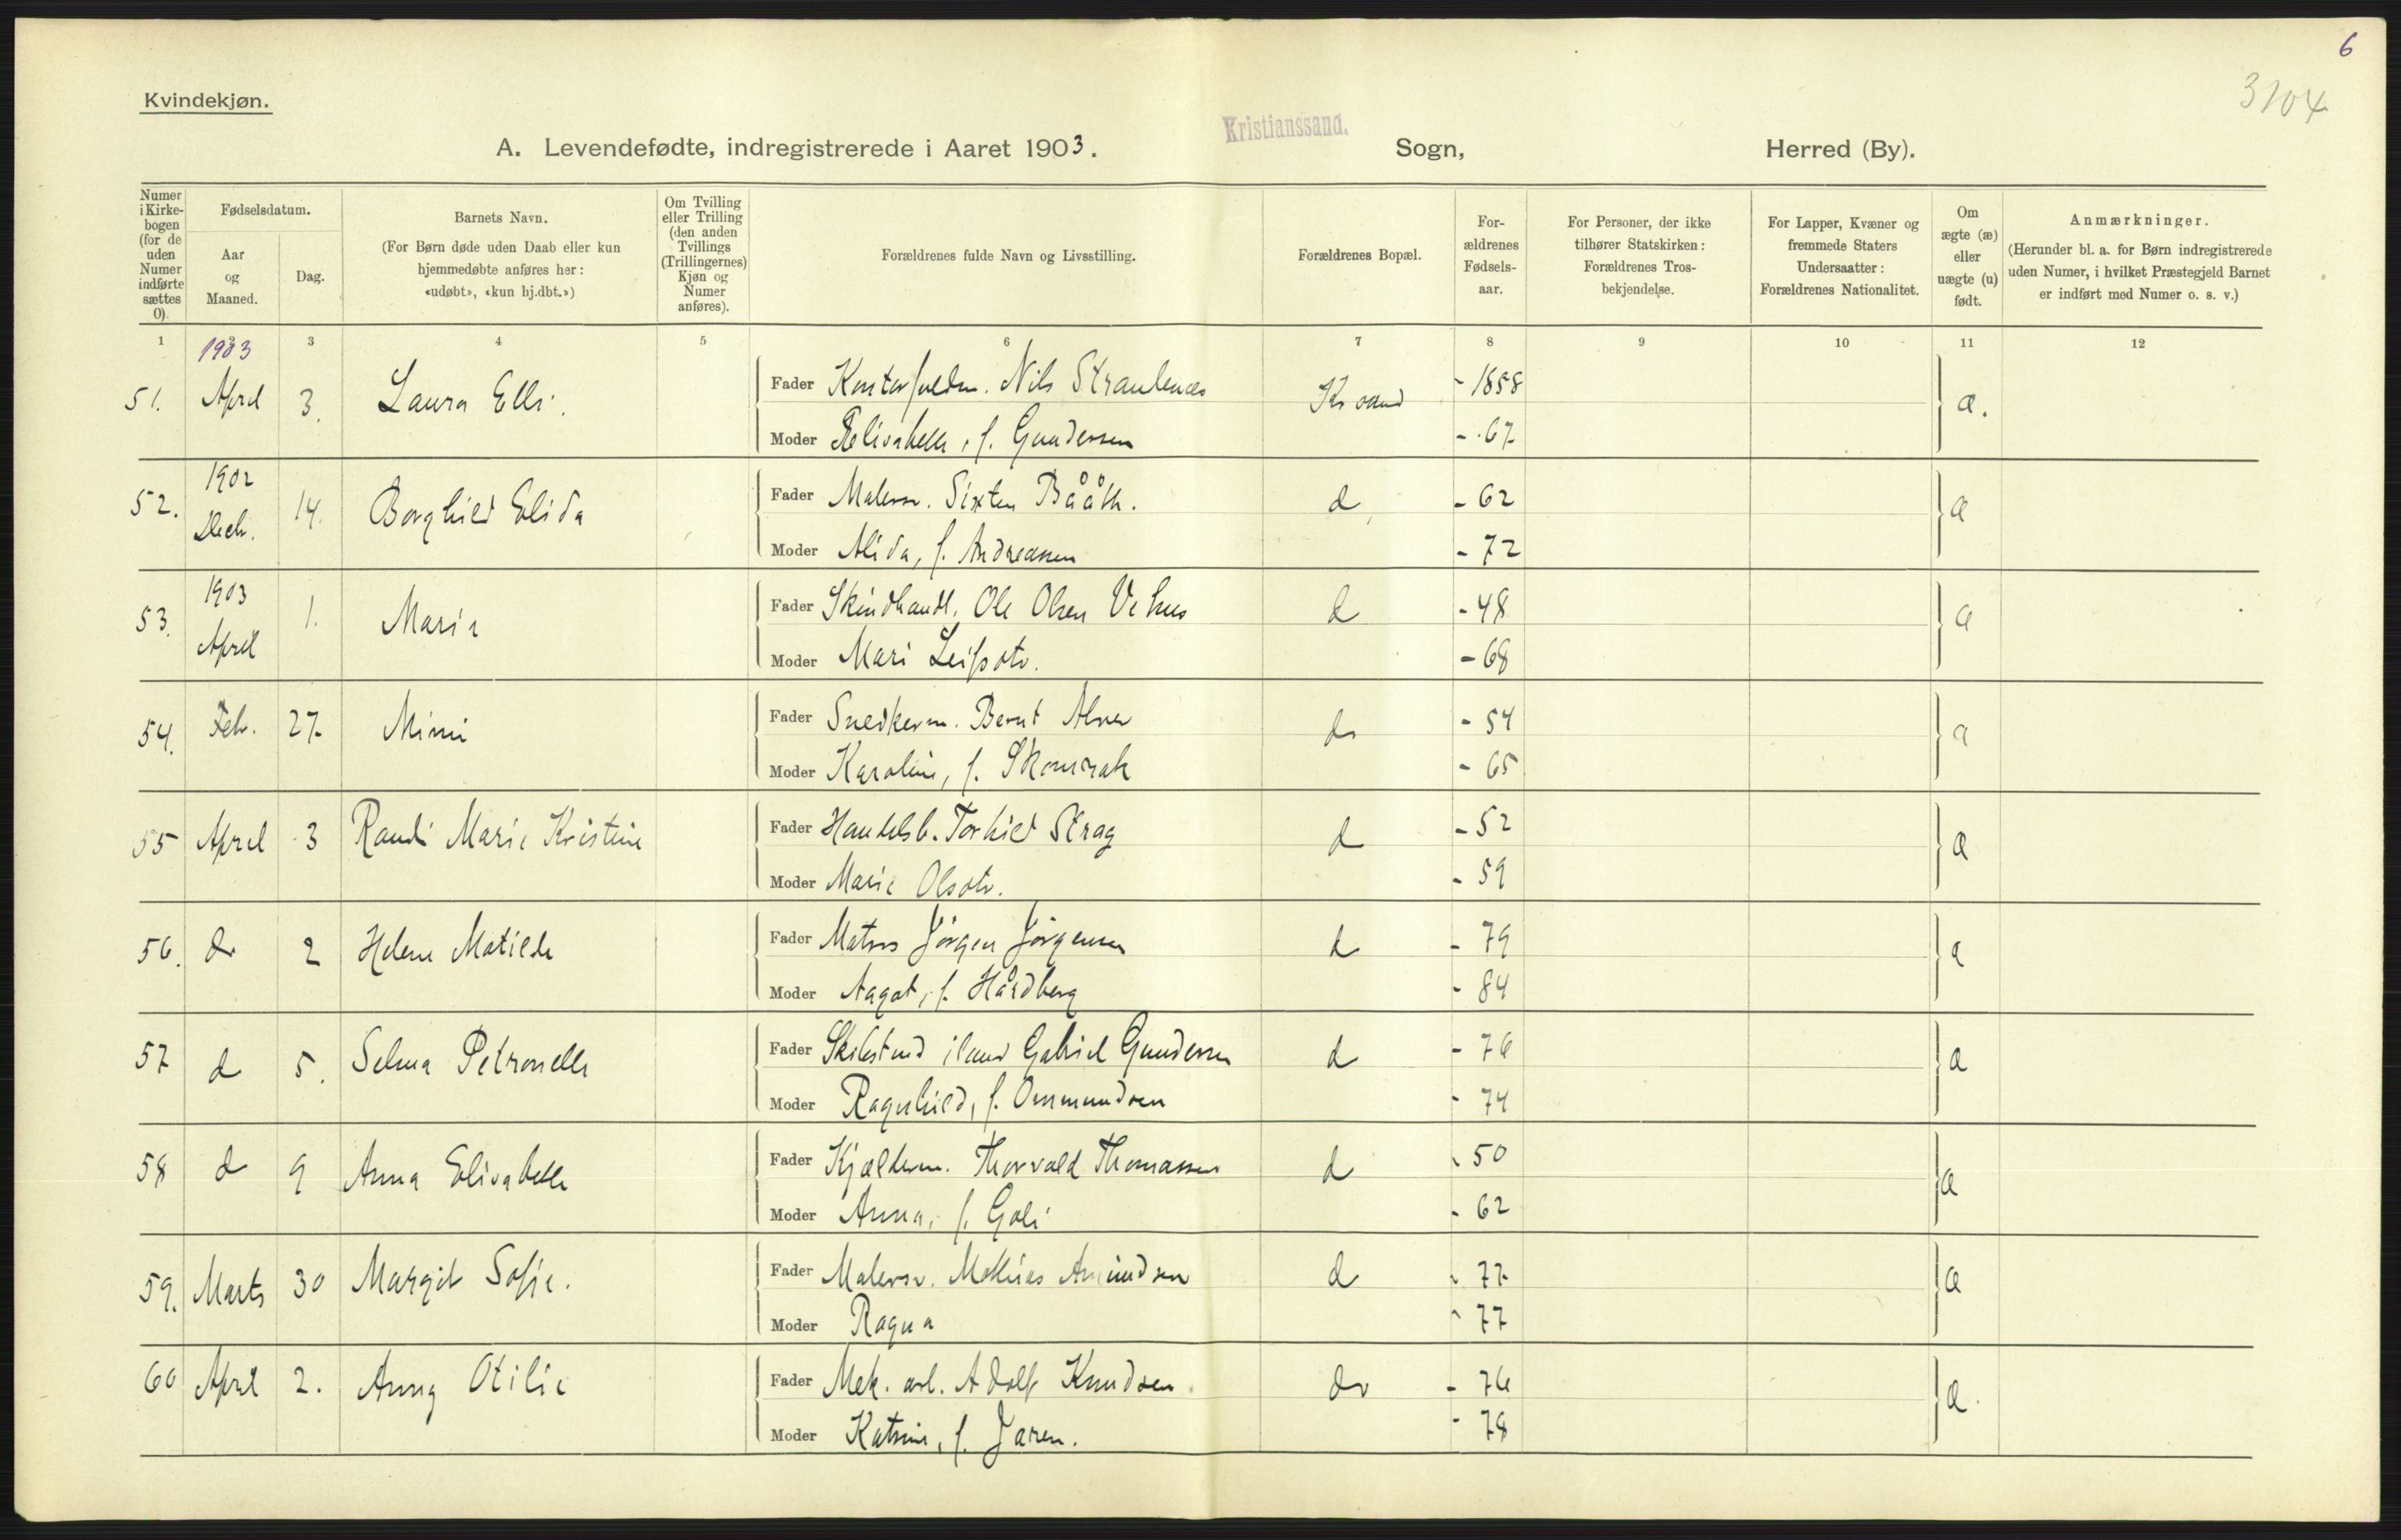 6
3104
Kvindekjøn.
A. Levendefødte, indregistrerede i Aaret 1903. Kristianssand. Sogn, Herred (By).
Numer i Kirkebogen (for de uden Numer indførte sættes 0).
Fødselsdatum.
Aar og Maaned.
Dag.
Barnets Navn.
(For Børn døde uden Daab eller kun hjemmedøbte anføres her: «udøbt», «kun hj.dbt.»)
Om Tvilling eller Trilling (den anden Tvillings (Trillingernes) Kjøn og Numer anføres).
Forældrenes fulde Navn og Livsstilling.
Forældrenes Bopæl.
For-ældrenes Fødsels-aar.
For Personer, der ikke tilhører Statskirken: Forældrenes Tros-bekjendelse.
For Lapper, Kvæner og fremmede Staters Undersaatter: Forældrenes Nationalitet.
Om ægte (æ) eller uægte (u) født.
Anmærkninger.
(Herunder bl. a. for Børn indregistrerede uden Numer, i hvilket Præstegjeld Barnet er indført med Numer o. s. v.)
1 2 3 4 5 6 7 8 9 10 11 12
1903
51. April 3. Laura Elli. Fader Nils Krsand - 1858 æ.
Moder Elisabeth, f. Gundersen - 67
1902
52. Decb. 14. Borghild Elida Fader Malersv. Sixten Bååth. d - 62 æ
Moder Alida, f. Andreassen - 72
1903
53. April 1. Marie Fader Skindhandl. Ole Olsen Vehus d - 48 æ
Moder Mari Leifsdtr. - 68
54. Feb. 27. Mimi Fader Snedkerm. Bernt Alver do - 54 æ
Moder Karoline, f. - 65
55 April 3 Randi Marie Kristine Fader Handelsb. Torkild Strag d - 52 æ
Moder Marie Olsdtr. - 59
56. do 2 Helene Matilde Fader Matros Jörgen Jörgensen d - 79 æ
Moder Aagot, f. Hårdberg - 84
57 d 5. Selma Petronelle Fader Gabriel Gundersen d - 76 æ
Moder Ragnhild, f. Ommundsen - 74
58 d 9 Anna Elisabeth Fader Kjælderm. Thorvald Thomassen d - 50 æ
Moder Anna, f. Goli - 62
59. Marts 30 Margit Sofie. Fader Malersv. Mathias Amundsen d - 77 æ
Moder Ragna - 77
60 April 2. Anny Otilie Fader Mek. arb. Adolf Knudsen do - 76 æ.
Moder Katrine, f. Jaren. - 78